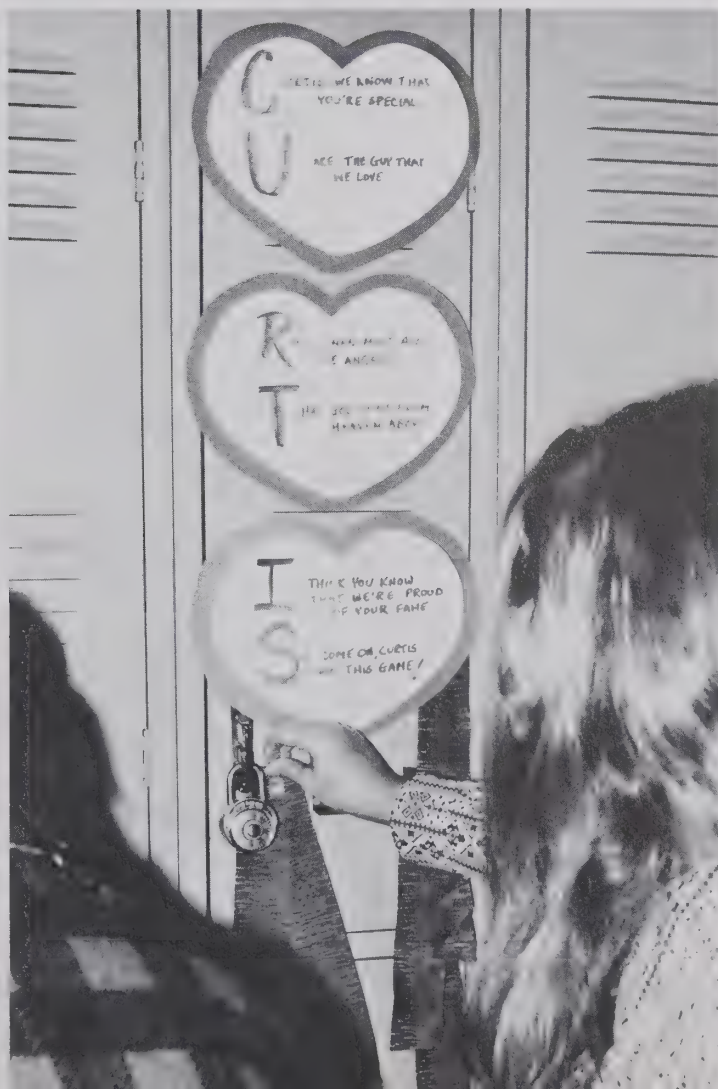 C
WE KNOW THAT
YOU'RE SPECIAL
U
ARE THE GUY THAT
WE LOVE
R
T
HEAVEN
I
THINK YOU KNOW
THAT WE'RE PROUD
OF YOUR FAME
S
COME ON, CURTIS
THIS GAME!